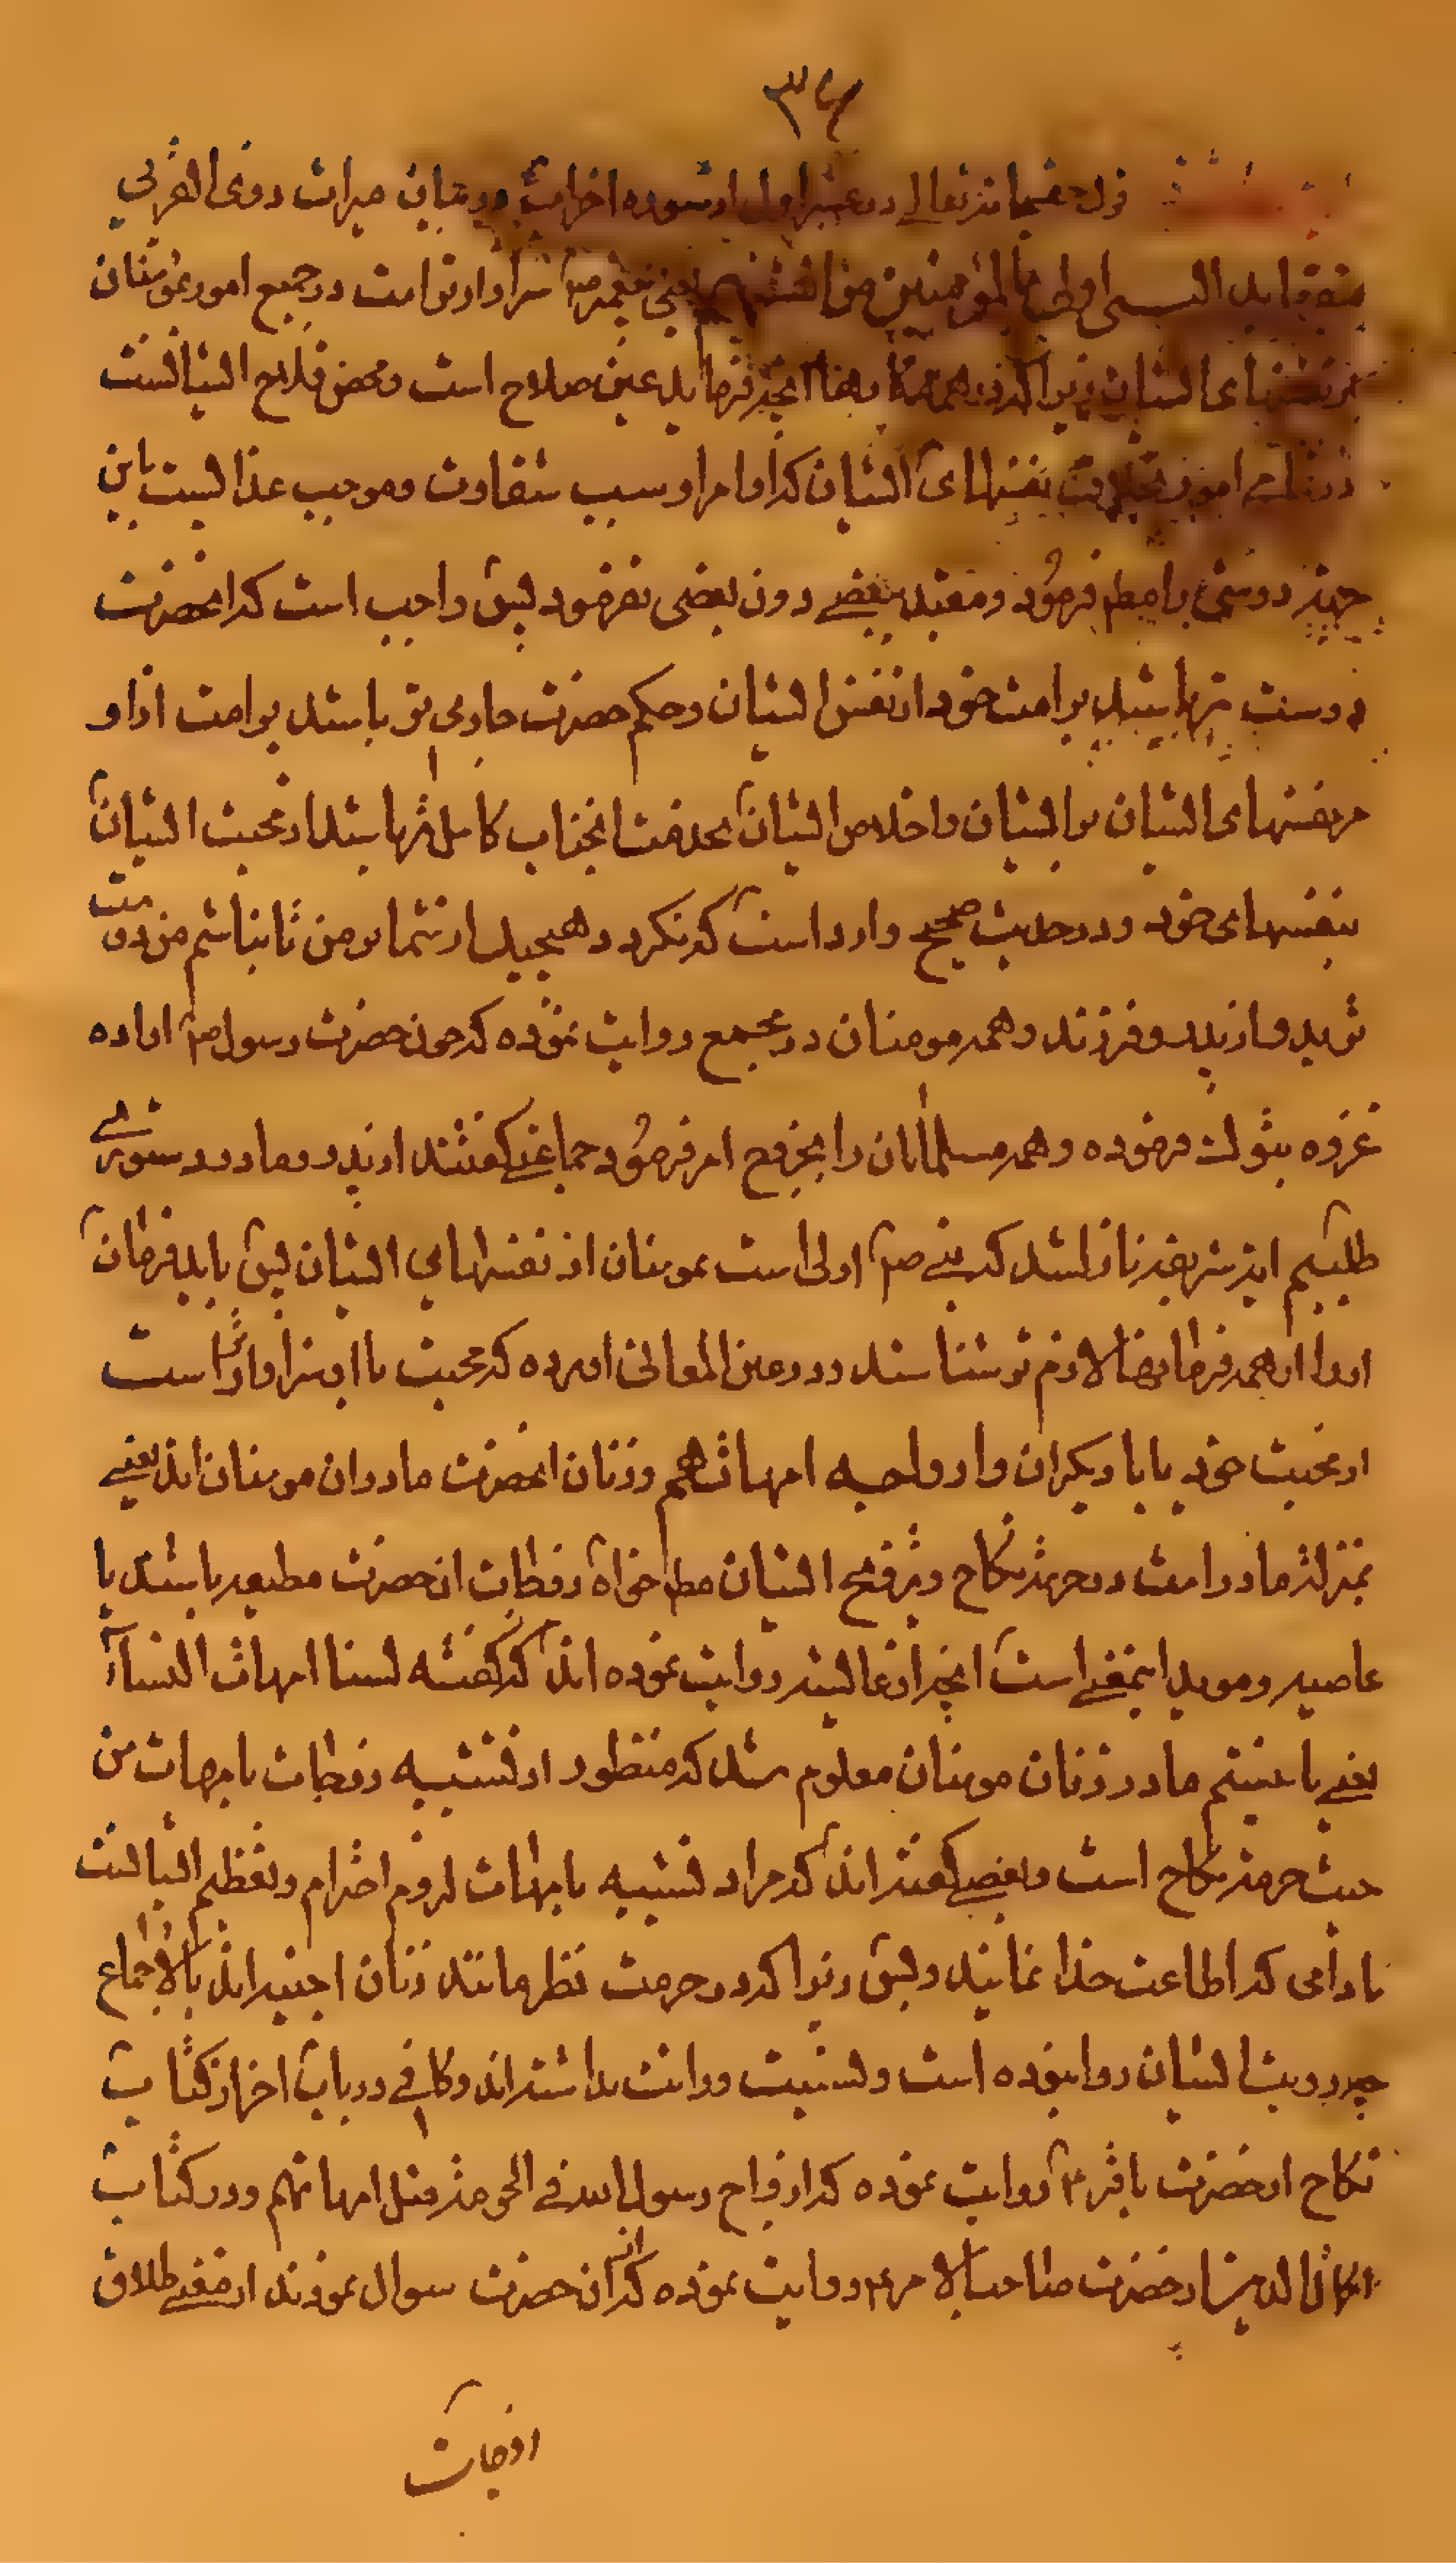 ۳۶
قول حقسبحانه تعالی در عشر اول از سوره احزابست در بیان میراث ذوی القربی
میفرماید النبی اولی بالمؤمنین من انفسهم یعنی پیغمبر ص سزاوارتر است در جمیع امور بمؤمنان
از نفسهای ایشان زیرا که در همه کارها آنچه فرماید عین صلاح است و محض فلاح ایشانست
در تمامی امور بخلاف نفسهای ایشان که اوامر او سبب شقاوت و موجب عذابست باین
جهته دوستی را مطلق فرمود و مقید ببعضی دون بعضی نفرمود پس واجب است که آنحضرت
دوست تر باشد بر امت خود از نفس ایشان و حکم حضرت جاری تر باشد بر امت از او
مر نفسهای ایشان بر ایشان و اخلاص ایشان بخدمت انجناب کامل تر باشد از محبت ایشان
بنفسهای خود و در حدیث صحیح وارد است که نگردد هیچیک از شما مومن تا نباشم من دوست
تر بدو از پدر و فرزند و همه مومنان در مجمع روایت نموده که چون حضرت رسول ص اراده
غزوه تبوک فرموده و همه مسلمانان را بخروج امر فرمود جماعتی گفتند از پدر و مادر دستوری
طلبیم ایه شریفه نازل شد که نبی ص اولی است بمومنان از نفسهای ایشان پس باید فرمان
او را از همه فرمانها لازم تر شناسند و در عین المعانی اورده که محبت با او سزاوارتر است
از محبت خود یا با دیگران وازواجه امهاتهم و زنان انحضرت مادران مومنان اند یعنی
بمنزله مادر امت در حرمة نکاح و تزویج ایشان مطلقا خواه زوجات ان حضرت مطیعه باشد یا
عاصیه و موید اینمعنی است آنچه از عایشه روایت نموده اند که گفته لسنا امهات النساء
یعنی ما نیستیم مادر زنان مومنان معلوم شد که منظور از تشبیه زوجات بامهات من
حیث حرمة نکاح است و بعضی گفته اند که مراد تشبیه بامهات لزوم احترام و تعظیم ایشانست
مادامی که اطاعت خدا نمایند و بس زیرا که در حرمت نظر مانند زنان اجنبیه اند بالاجماع
چه رویت ایشان روا نبوده است و نسبت وراثت نداشته اند و کافی در باب اخر از کتاب
نکاح از حضرت باقر ع روایت نموده که ازواج رسول الله فی الحرمة مثل امهاتهم و در کتاب
اکمال الدین از حضرت صاحب الامر ع روایت نموده که از ان حضرت سوال نمودند از معنی طلاق
زوجات